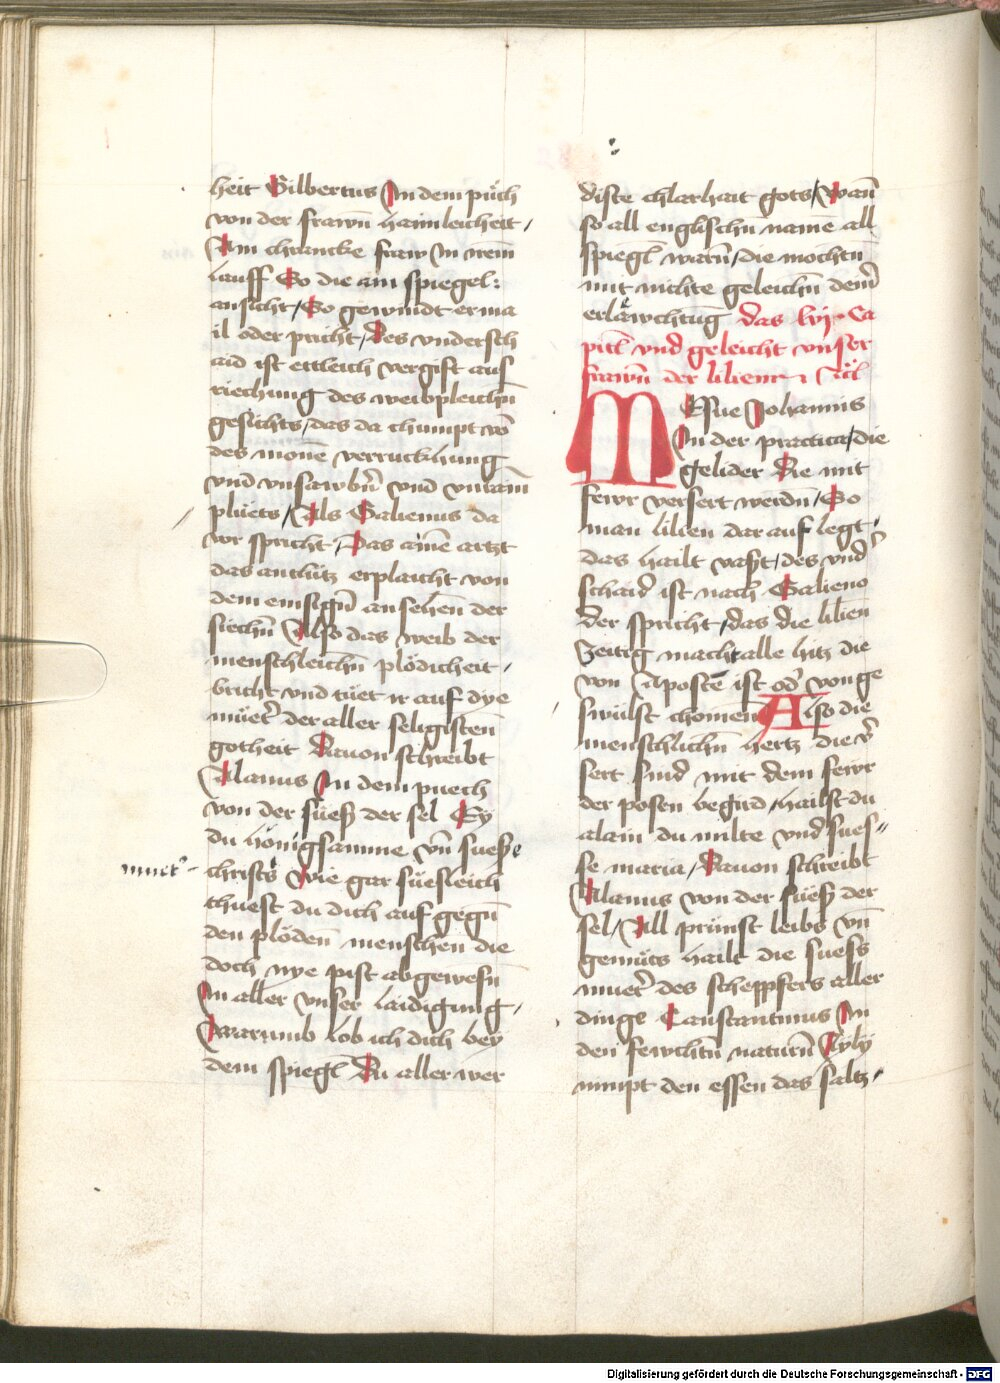 heit Gilbertus In dem půch
von der frawn̄ haimleicheit /
Ain chrancke fraw In irem̄
lauff So die ain spiegel :
ansicht / So gewindt er ma
il oder pricht / Des vndersch
aid ist ettleich vergift auf
riechung des weibpleichn̄
gesichts / das da chumpt võ
des monē verruckhung
vnd vnsawbr̄n vnd vnraim̄
pluets / Als Galienus da
vor spricht / Das ainē artzt
das antlütz erplaicht von
dem emsign̄ an sehen̄ der
siechn̄ Also das weib der
menschleichn̄ plödicheit /
bricht vnd tüet ir auf dye
müet̄ der aller seligisten̄
gotheit Dauon schreibt
Alanus In dem puech
von der süeß der sel Ey
du hönigsamme vn̄ sueße
christs Wie gar süesleich
muet̄
thuest du dich auf gegn̄
den plöden̄ menschen die
doch nye pist abgewesn̄
In aller vnser laidigung /
Warumb lob ich dich bey
dem spiegl̄ Du aller wer
diste chlarhait gots / Wan̄
so all englischn̄ namē all
spiegl̄ warn̄ / die mochtn̄
mit nichte geleichn̄ dein̄
erläwchtūg das lvj . Ca
pitl̄ vnd geleicht vnser
frawn̄ der lilienn
MEsue Johannis
In der practica / die
gelider Die mit
fewr versert werdn̄ / So
man lilien dar auf legt /
das hailt vast / des vnd̄
schaid ist nach Galieno
der spricht / das die lilien̄
zeitig macht alle hitz die
von Apostē ist od̄ von ge
swülst chomen̄ Also die
menschlichn̄ hertz die v̄
sert sind mit dem fewr
der posen begird / hailst du
alain du milte vnd sues
se maria / Dauon schreibt
Alanus von der süeß der
sel / All prünst leibs vn̄
gemüts hailt die suess
muet̄ des scheppfers aller
dinge Constantinus In
den fewchtn̄ naturn̄ Lyly
nimpt den essen das saltz /
Digitalisierung gefördert durch die Deutsche Forschungsgemeinschaft - DFG